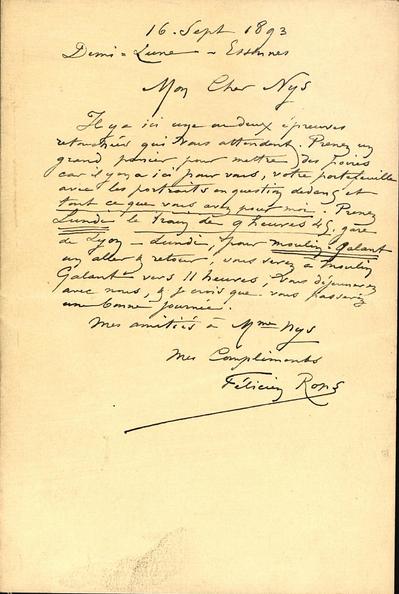 16. Sept 1893
Demi-Lune - Essonnes
Mon Cher Nys
Il y a ici une ou deux épreuves
retouchées qui vous attendent. Prenez un
grand panier pour mettre des poires
car il y en a ici pour vous, votre portefeuille
avec les portraits en question dedans et
tout ce que vous avez pour moi. Prenez
Lundi le train de 9 heures 45, gare
de Lyon - Lundi, pour moulin galant
un aller & retour, vous serez à Moulin
Galant vers 11 heures, vous déjeunerez
avec nous, & je crois que vous passerez
une bonne journée.
Mes amitiés à Mme Nys
Mes Compliments
Félicien Rops